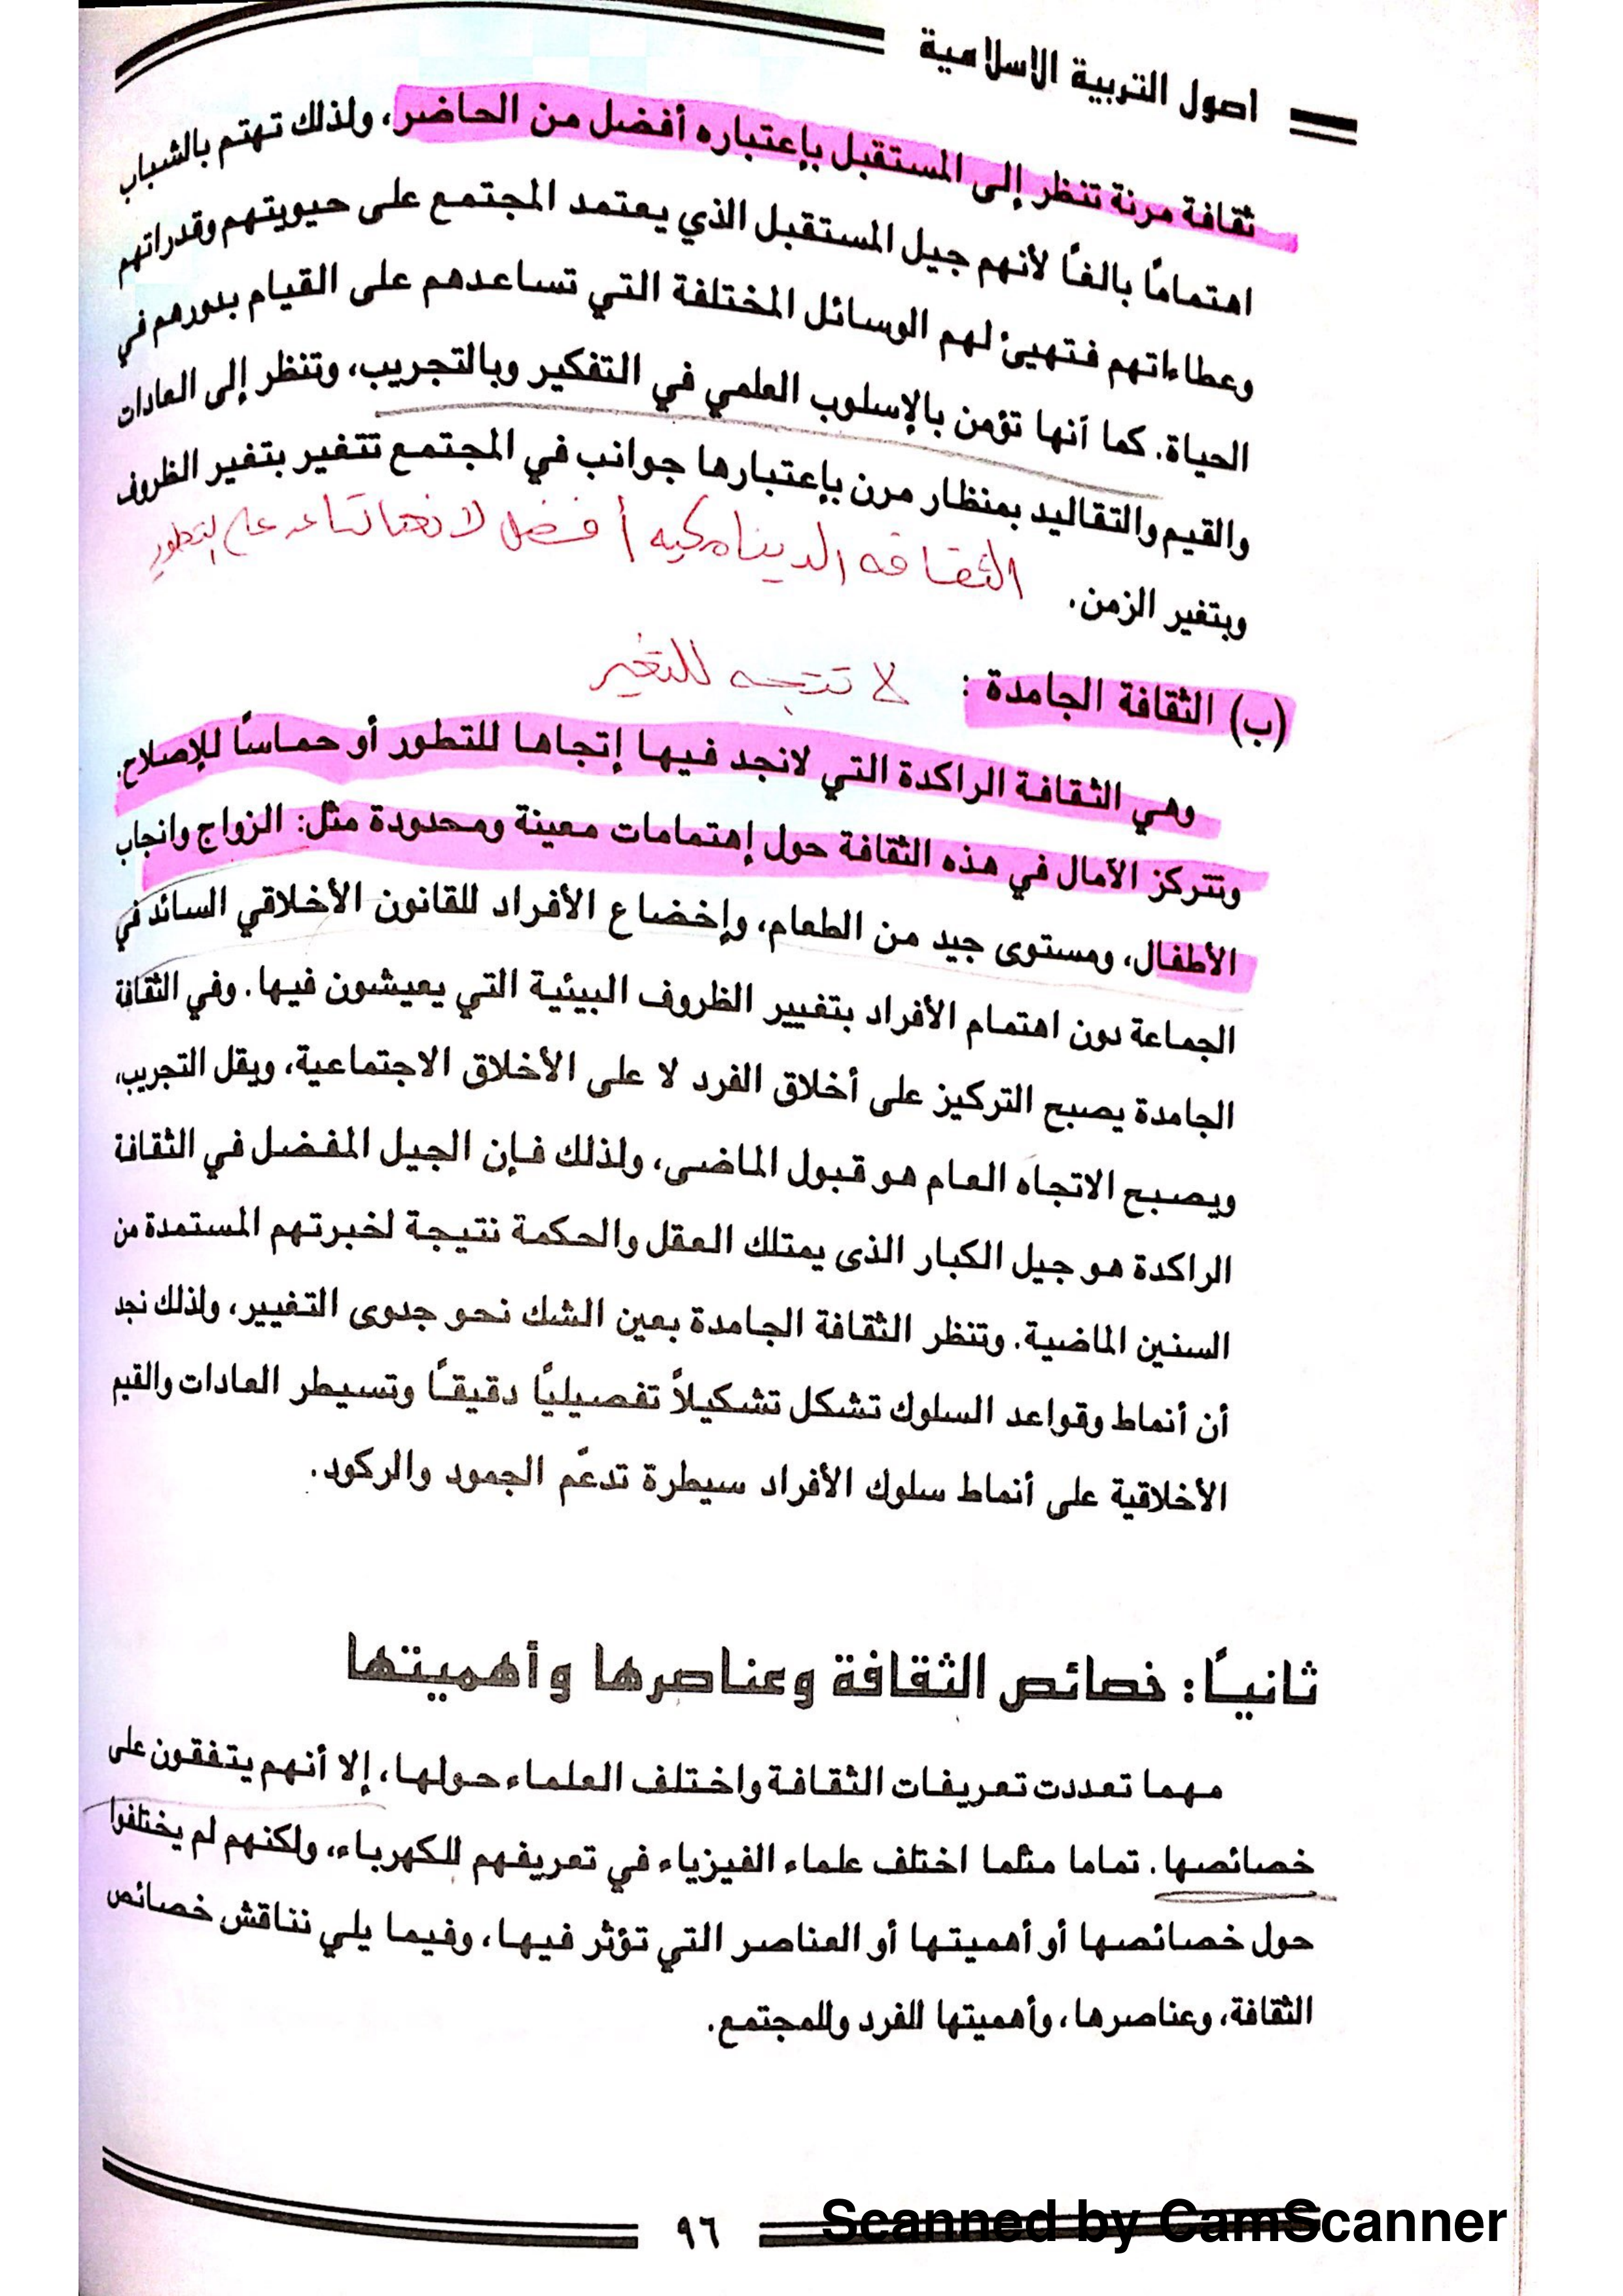 اصول التربية الاسلامية
ثقافة مرنة تنظر إلى المستقبل بإعتباره أفضل من الحاضر، ولذلك تهتم بالشباب
اهتمامًا بالغًا لأنهم جيل المستقبل الذي يعتمد المجتمع على حيويتهم وقدراتهم
وعطاءاتهم فتهيئ لهم الوسائل المختلفة التي تساعدهم على القيام بدورهم في
الحياة. كما أنها تؤمن بالإسلوب العلمي في التفكير وبالتجريب، وتنظر إلى العادات
والقيم والتقاليد بمنظار مرن بإعتبارها جوانب في المجتمع تتغير بتغير الظروف
وبتغير الزمن.
الثقافه الديناميكيه أفضل لانها تساعد على التطور
(ب) الثقافة الجامدة :
لا تتجه للتغير
وهي الثقافة الراكدة التي لانجد فيها إتجاها للتطور أو حماسًا للإصلاح.
وتتركز الآمال في هذه الثقافة حول إهتمامات معينة ومحدودة مثل: الزواج وانجاب
الأطفال، ومستوى جيد من الطعام، وإخضاع الأفراد للقانون الأخلاقي السائد في
الجماعة دون اهتمام الأفراد بتغيير الظروف البيئية التي يعيشون فيها. وفي الثقافة
الجامدة يصبح التركيز على أخلاق الفرد لا على الأخلاق الاجتماعية، ويقل التجريب،
ويصبح الاتجاه العام هو قبول الماضى، ولذلك فإن الجيل المفضل في الثقافة
الراكدة هو جيل الكبار الذى يمتلك العقل والحكمة نتيجة لخبرتهم المستمدة من
السنين الماضية. وتنظر الثقافة الجامدة بعين الشك نحو جدوى التغيير، ولذلك نجد
أن أنماط وقواعد السلوك تشكل تشكيلاً تفصيليًا دقيقًا وتسيطر العادات والقيم
الأخلاقية على أنماط سلوك الأفراد سيطرة تدعّم الجمود والركود.
ثانيًا: خصائص الثقافة وعناصرها وأهميتها
مهما تعددت تعريفات الثقافة واختلف العلماء حولها، إلا أنهم يتفقون على
خصائصها. تماما مثلما اختلف علماء الفيزياء في تعريفهم للكهرباء، ولكنهم لم يختلفوا
حول خصائصها أو أهميتها أو العناصر التي تؤثر فيها، وفيما يلي نناقش خصائص
الثقافة، وعناصرها، وأهميتها للفرد وللمجتمع.
٩٦
Scanned by CamScanner